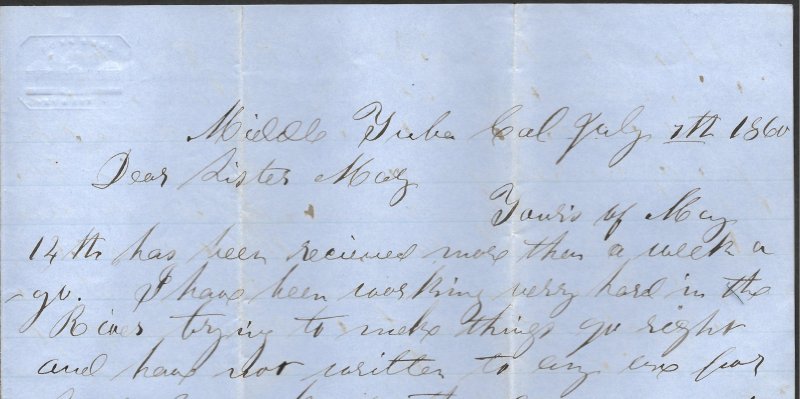 Middle Yuba Cal July 7th 1860
Dear Sister May
Yours of May
12th has been recieved more then a week a
-go. I have been working verry hard in the
River trying to make things go right
and have not written to any one for